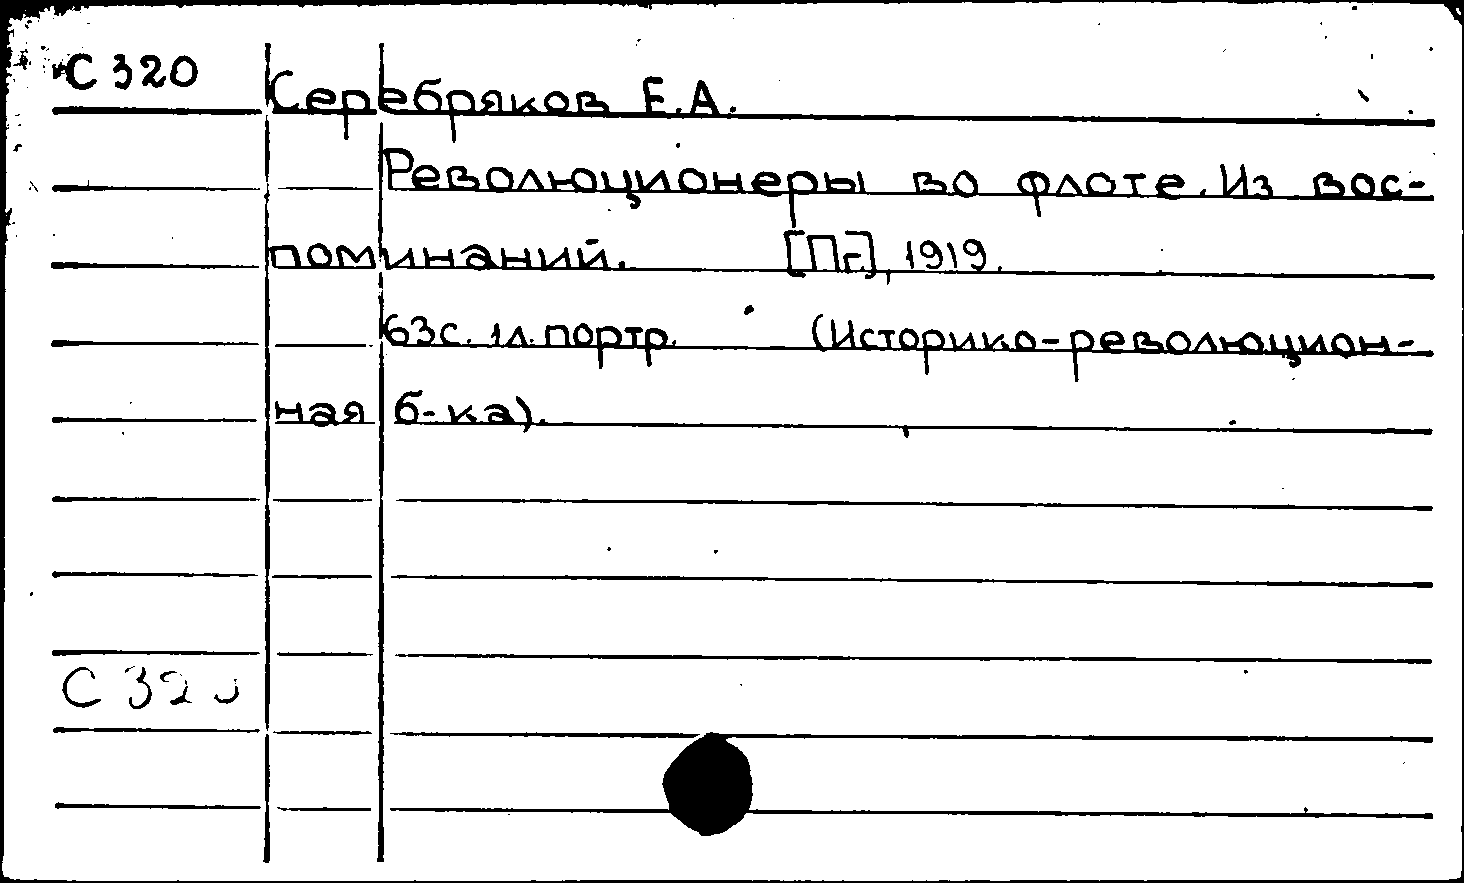 С 320
Серебряков Е.А.
Революционеры во флоте. Из вос-
поминаний. [Пг.], 1919.
63с. 1л. портр. (Историко-революцион-
ная б-ка).
С 320